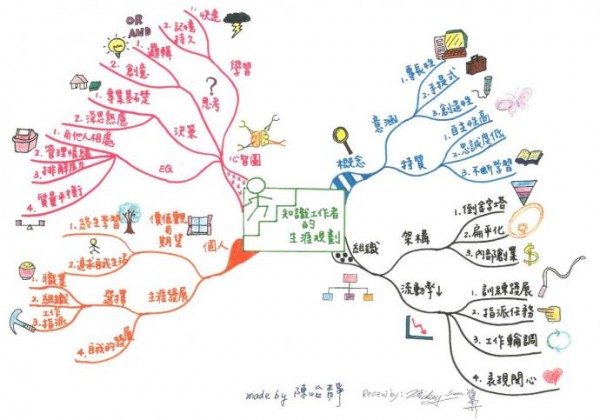 知識工作者
的
生涯規劃
概念
意涵
1.專長性
2.手提式
3.創造性
特質
1.自主性高
2.忠誠度低
3.不斷學習
組織
架構
1.倒金字塔
2.扁平化
3.內部創業
流動率↓
1.訓練發展
2.指派任務
3.工作輪調
4.表現關心
個人
價值觀
與
期望
1.終生學習
2.追求自我生活
生涯發展
選擇
1.職業
2.組織
3.工作
指派
4.自我的發展
心智圖
學習
1.快速
2.記憶
持久
思考
1.邏輯
OR
AND
2.創意
?
決策
1.專業基礎
2.深思熟慮
EQ
1.與他人相處
2.管理情緒
3.排解壓力
4.質量平衡
$
made by 陳
Review by: